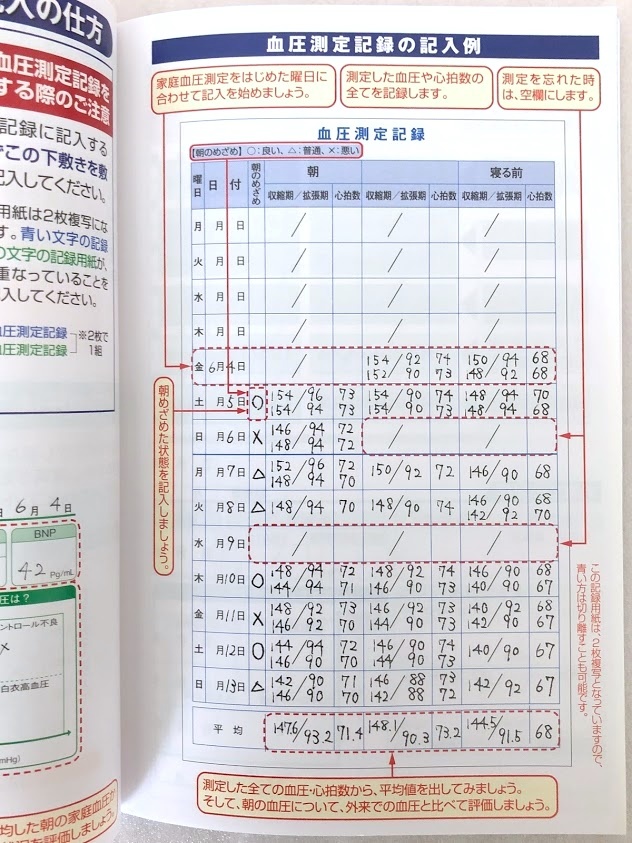 入の仕方
血圧測定記録を
する際のご注意
記録に記入する
でこの下敷きを敷
記入してください。
用紙は2枚複写にな
す。青い文字の記録
の文字の記録用紙が、
重なっていることを
入してください。
血圧測定記録 ※2枚で
血圧測定記録 1組
日 6月 4日
BNP
42 Pg/mL
圧は?
コントロール不良
白衣高血圧
mHg)
均した朝の家庭血圧か
状況を評価しましょう。
血圧測定記録の記入例
家庭血圧測定をはじめた曜日に
合わせて記入を始めましょう。
測定した血圧や心拍数の
全てを記録します。
測定を忘れた時
は、空欄にします。
血圧測定記録
【朝のめざめ】○:良い、△:普通、×:悪い
曜日 日付 朝のめざめ 朝 寝る前
収縮期/拡張期 心拍数 収縮期/拡張期 心拍数 収縮期/拡張期 心拍数
月 月 日 / / /
火 月 日 / / /
水 月 日 / / /
木 月 日 / / /
金 6月4日 154/92 74 150/94 68
152/90 73 148/92 68
土 月5日 ○ 154/96 73 154/90 74 148/94 70
154/94 73 154/90 73 148/94 68
日 月6日 × 146/94 72 / /
148/94 72
月 月7日 △ 152/96 72 150/92 72 146/90 68
148/94 70
火 月8日 △ 148/94 70 148/90 74 146/90 68
142/92 70
水 月9日 / / /
木 月10日 ○ 148/94 72 148/92 74 146/90 68
144/94 71 146/90 73 140/90 67
金 月11日 × 148/92 73 146/92 73 140/92 68
146/92 70 144/90 73 142/90 67
土 月12日 ○ 144/94 72 146/90 74 140/90 67
146/92 70 144/90 73
日 月13日 △ 142/90 71 146/88 73 142/92 67
146/90 70 142/88 72
平均 147.6/93.2 71.4 148.1/90.3 73.2 144.5/91.5 68
朝めざめた状態を記入しましょう。
この記録用紙は、2枚複写となっていますので、
青い方は切り離すことも可能です。
測定した全ての血圧・心拍数から、平均値を出してみましょう。
そして、朝の血圧について、外来での血圧と比べて評価しましょう。